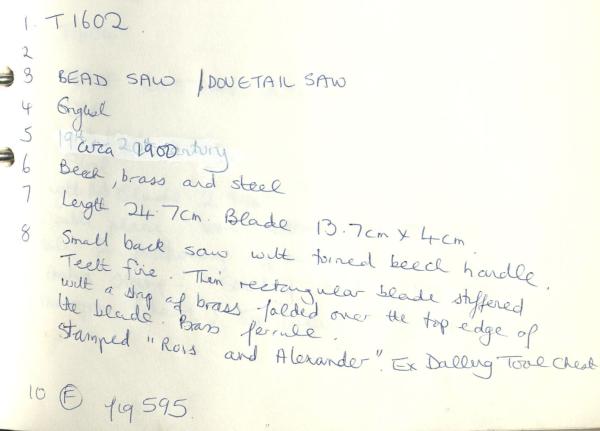 1. T 1602.
2
3 BEAD SAW / DOVETAIL SAW
4 English
5 circa 1900
6 Beech, brass and steel
7 Length 24.7cm. Blade 13.7cm x 4cm.
8 Small back saw with turned beech handle.
Teeth fine. Thin rectangular blade stiffened
with a strip of brass folded over the top edge of
the blade. Brass ferrule.
Stamped "Ross and Alexander". Ex Dalling Tool Chest
10 (F) fig 595.